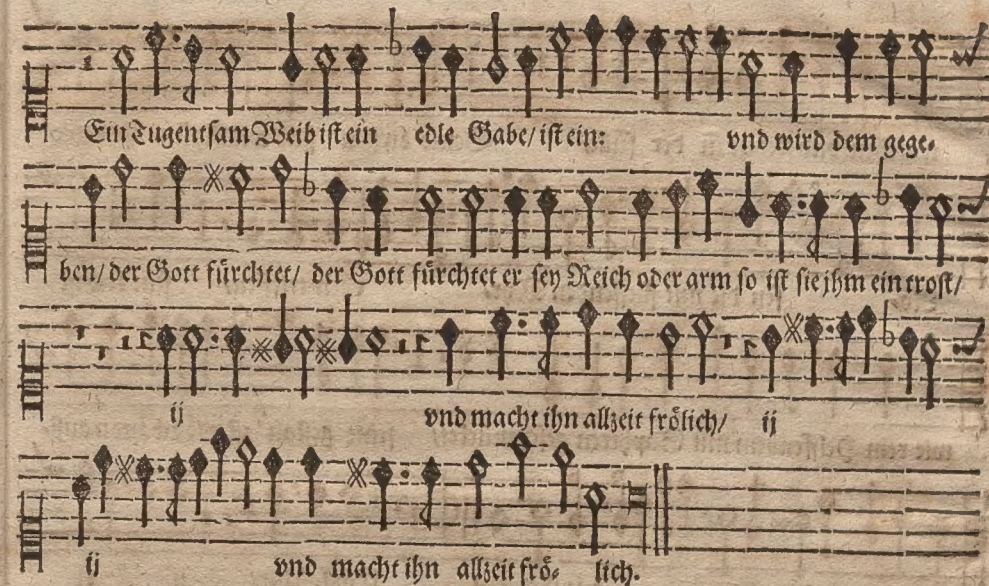 Ein Tugentsam Weib ist ein edle Gabe/ ist ein: vnd wird dem gege-
ben/ der Gott fürchtet/ der Gott fürchtet er sey Reich oder arm so ist sie jhm ein trost/
ij vnd macht ihn allzeit frölich/ ij
ij vnd macht ihn allzeit frö- lich.